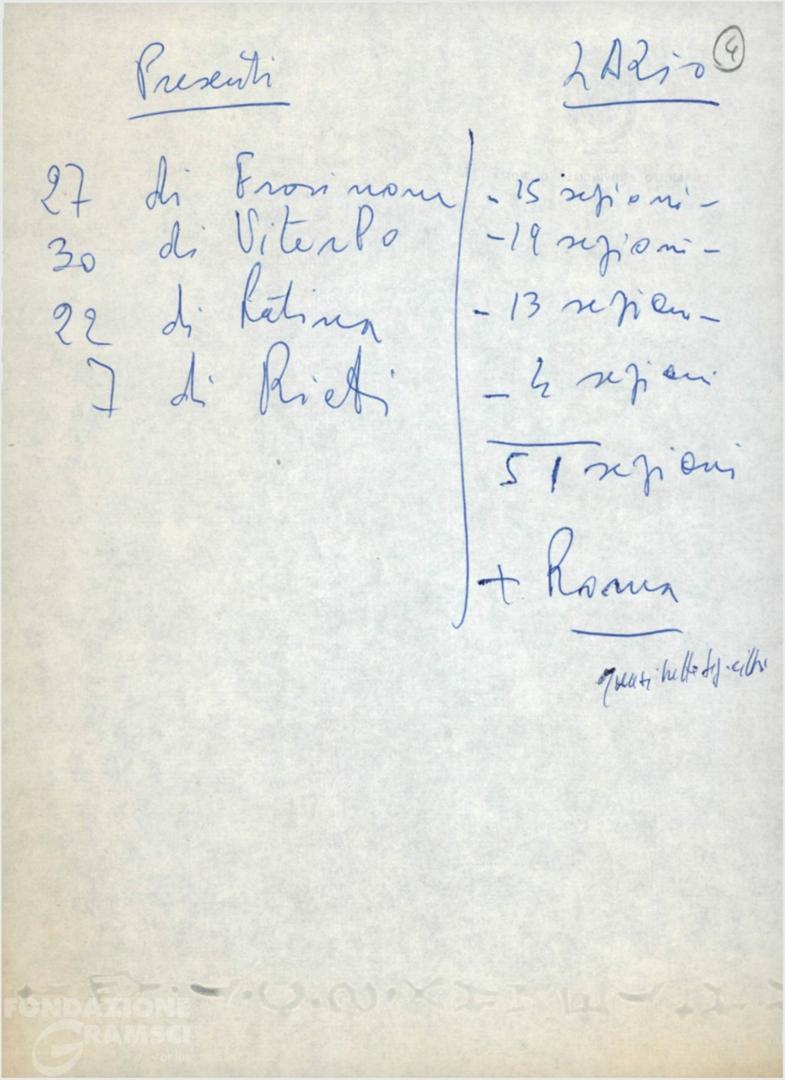 Presenti LAZio 4
27 di Frosinone - 15 sezioni -
30 di Viterbo - 19 sezioni -
22 di Latina - 13 sezioni -
7 di Rieti - 4 sezioni
51 sezioni
+ Roma
FONDAZIONE
GRAMSCI